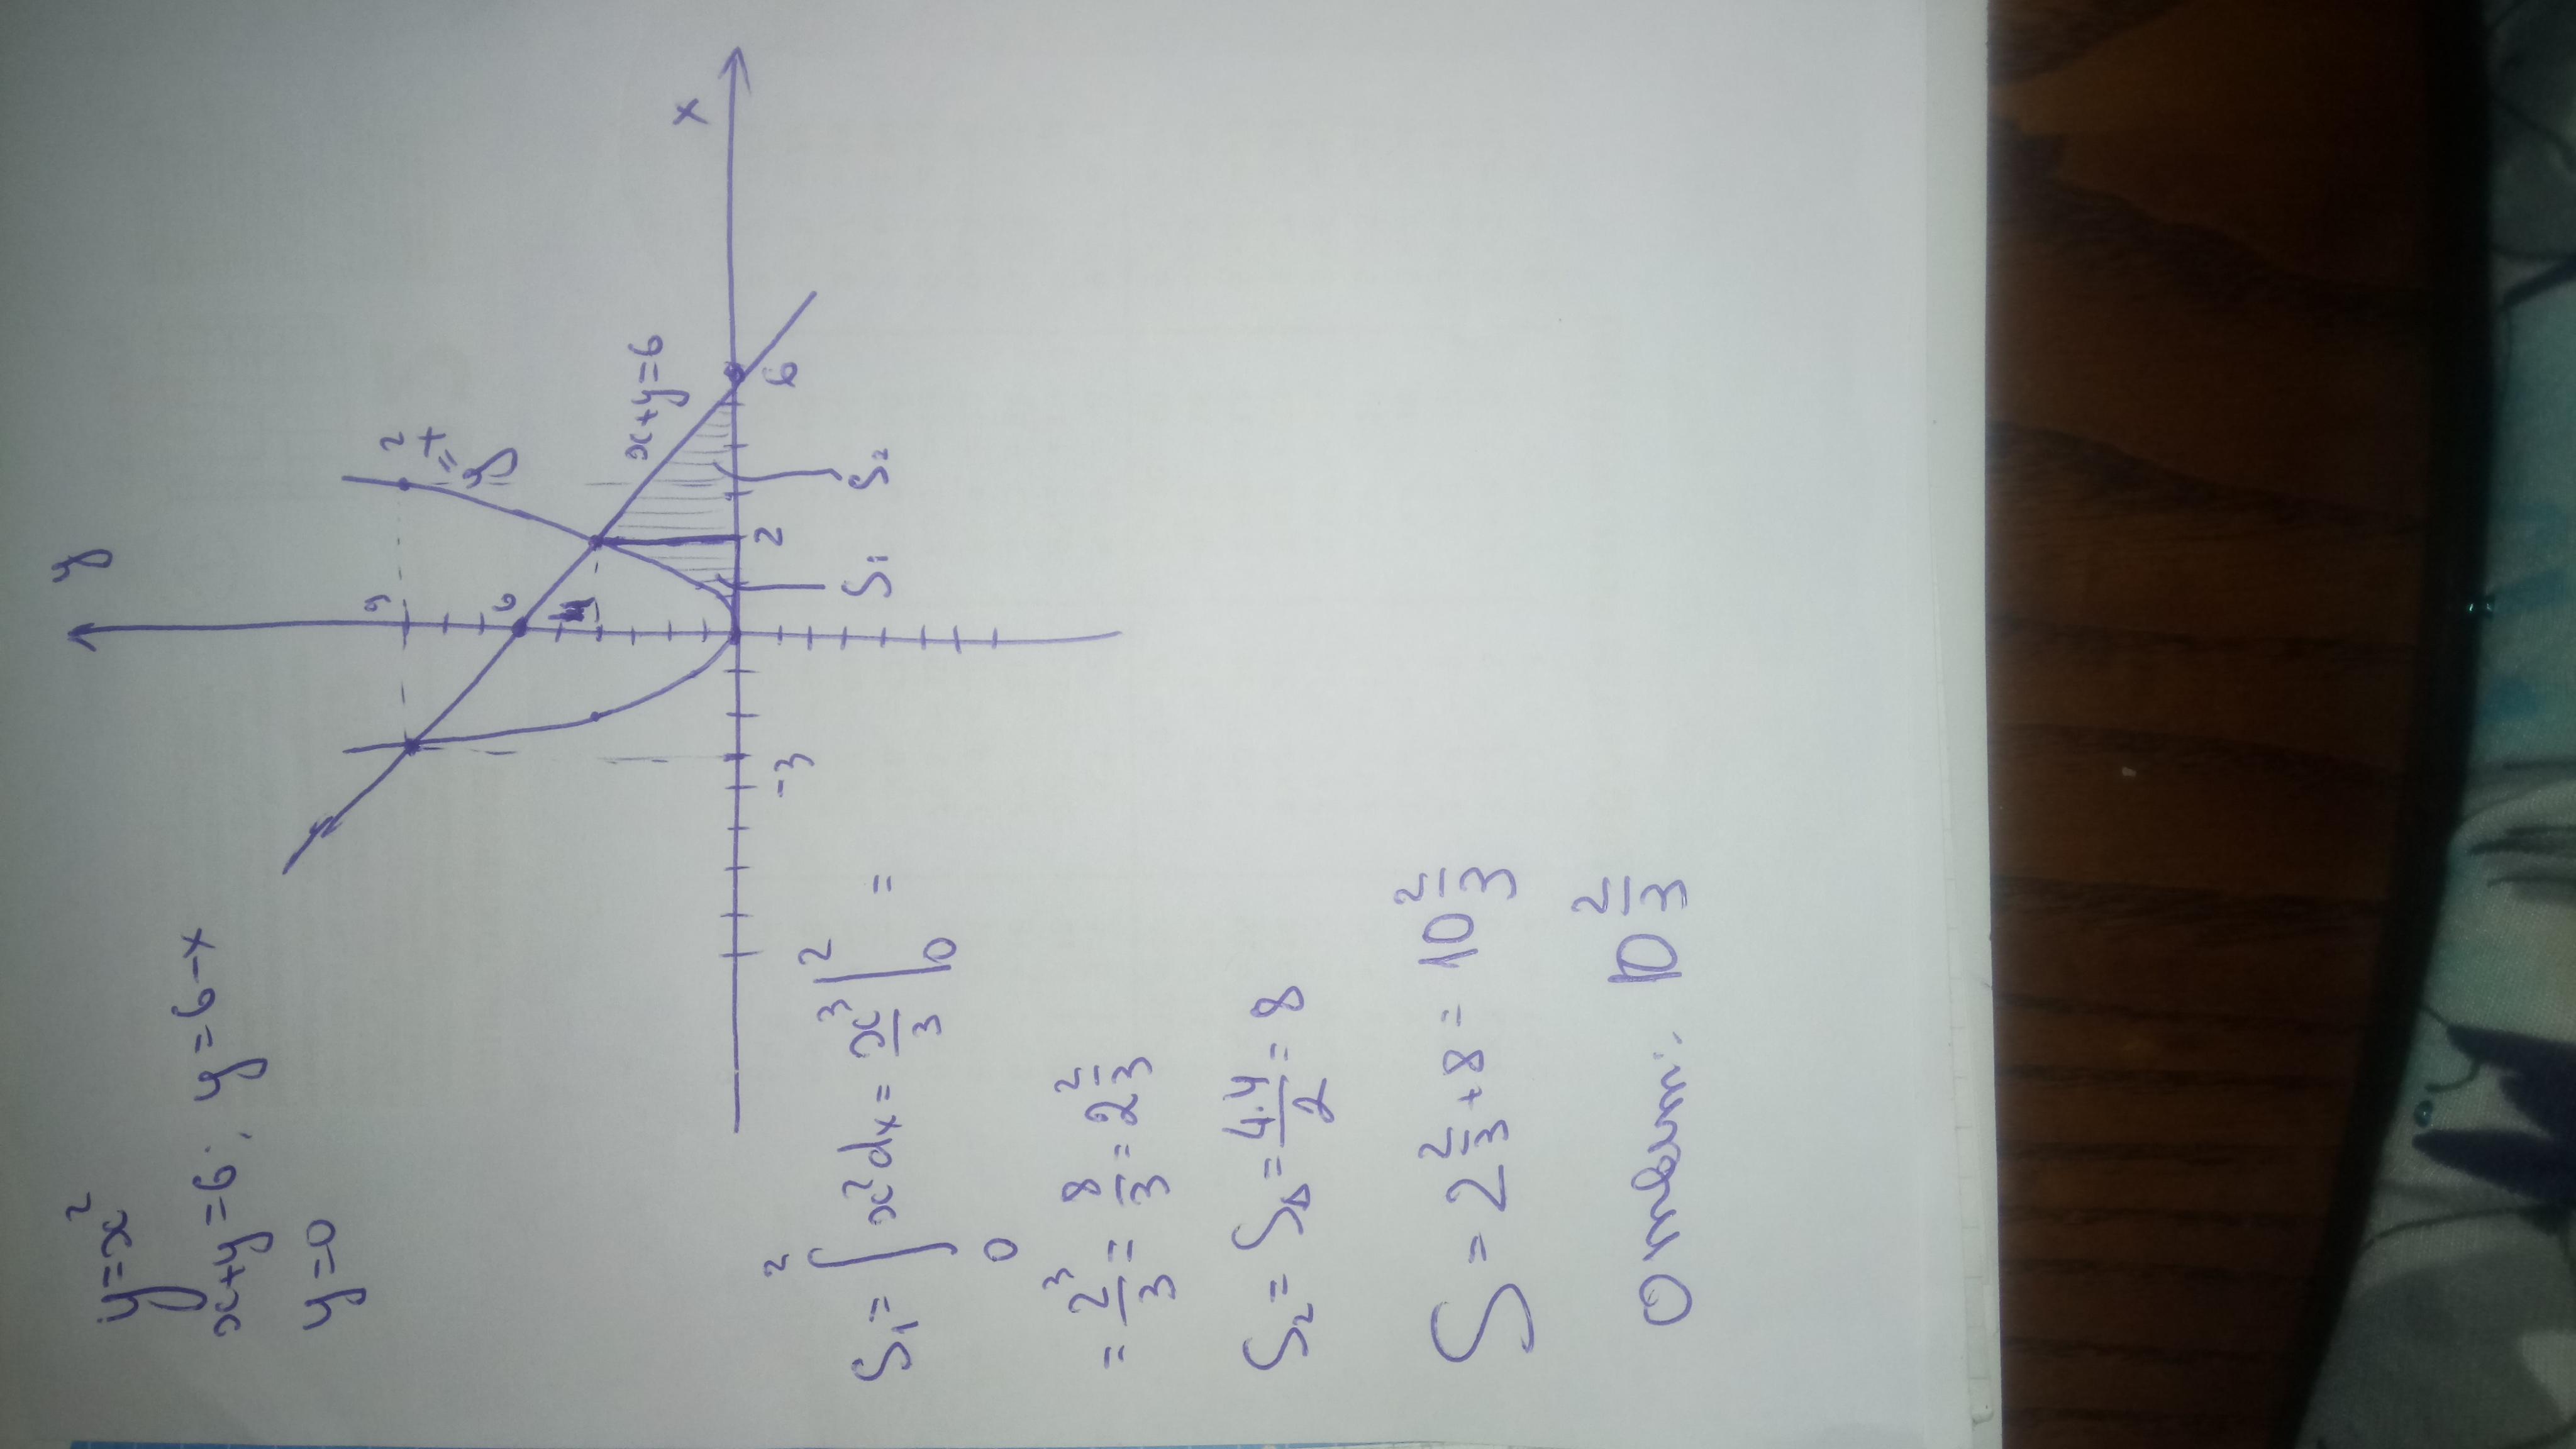 y=x²
x+y=6; y=6-x
y=0
y
x
9
6
4
y=x²
x+y=6
-3
2
6
S₁
S₂
S₁=∫₀² x²dx = x³/3 |₀² =
= 2³/3 = 8/3 = 2 2/3
S₂ = S_Δ = 4·4/2 = 8
S = 2 2/3 + 8 = 10 2/3
Ответ: 10 2/3